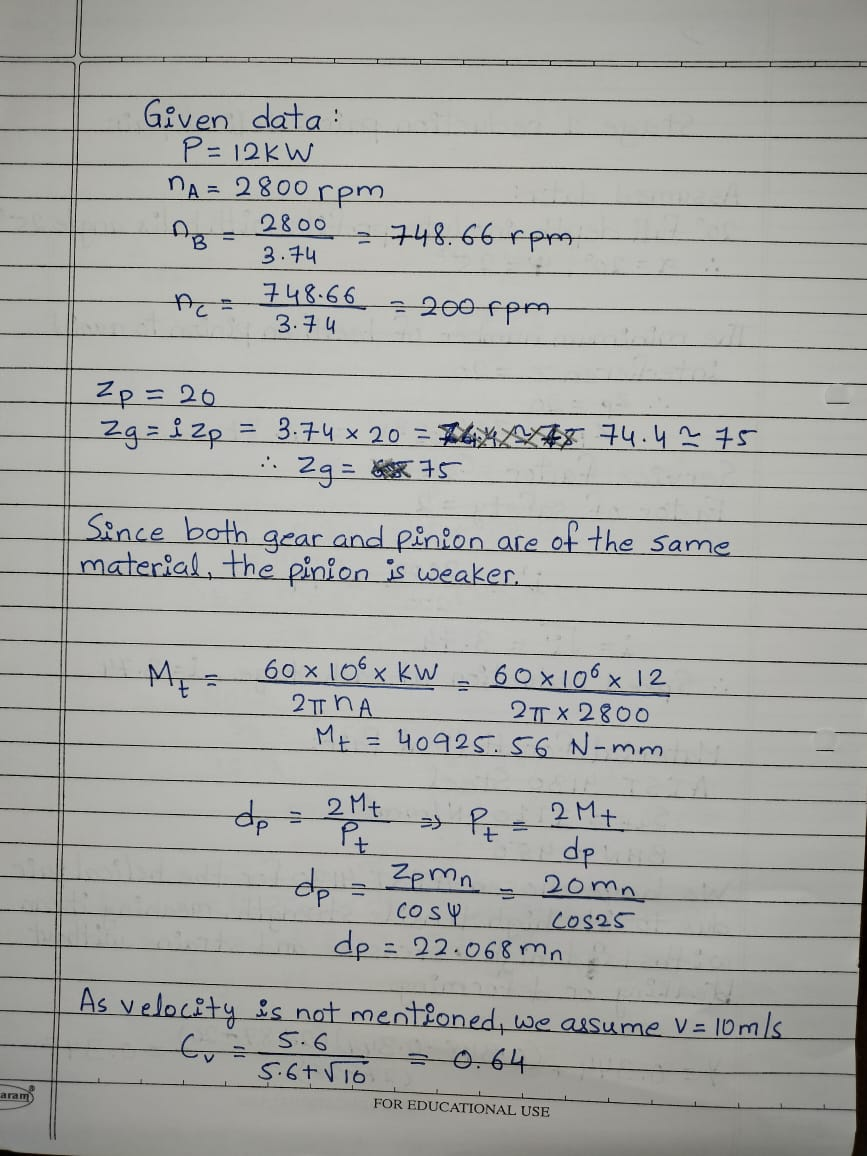 Given data:
P = 12KW
nA = 2800 rpm
nB = 2800 / 3.74 = 748.66 rpm
nC = 748.66 / 3.74 = 200 rpm
Zp = 20
Zg = i Zp = 3.74 × 20 = 74.4 ≃ 75
∴ Zg = 75
Since both gear and pinion are of the same
material, the pinion is weaker.
Mt = 60 × 10⁶ × KW / 2π nA = 60 × 10⁶ × 12 / 2π × 2800
Mt = 40925.56 N-mm
dp = 2Mt / Pt ⇒ Pt = 2Mt / dp
dp = Zp mn / cos ψ = 20 mn / cos25
dp = 22.068 mn
As velocity is not mentioned, we assume v = 10m/s
Cv = 5.6 / 5.6 + √10 = 0.64
aram®
FOR EDUCATIONAL USE